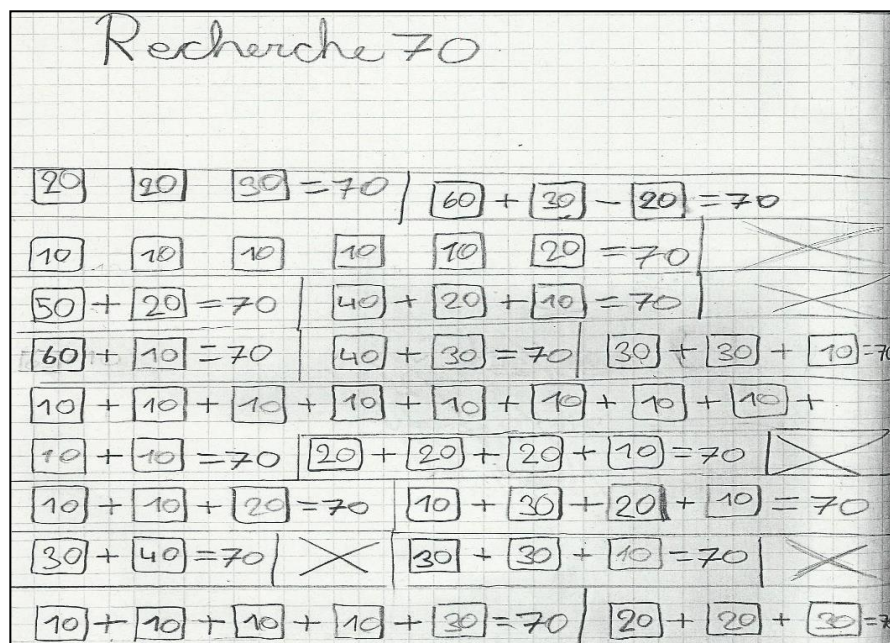 Recherche 70
20 20 30 = 70 | 60 + 30 - 20 = 70
10 10 10 10 10 20 = 70
50 + 20 = 70 | 40 + 20 + 10 = 70
60 + 10 = 70 40 + 30 = 70 30 + 30 + 10 = 70
10 + 10 + 10 + 10 + 10 + 10 + 10 + 10 +
10 + 10 = 70 20 + 20 + 20 + 10 = 70
10 + 10 + 20 = 70 10 + 30 + 20 + 10 = 70
30 + 40 = 70 30 + 30 + 10 = 70
10 + 10 + 10 + 10 + 30 = 70 20 + 20 + 30 = 7